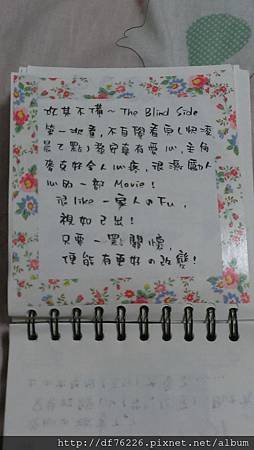 攻其不備～The Blind Side
第一次看,不自覺看完(快凌
晨2點)養母真有愛心,主角
麥克好令人心疼,很激勵人
心的一部Movie!
很like一家人のFu,
視如己出!
只要一點關懷,
便能有更好の改變!
http://df76226.pixnet.net/album